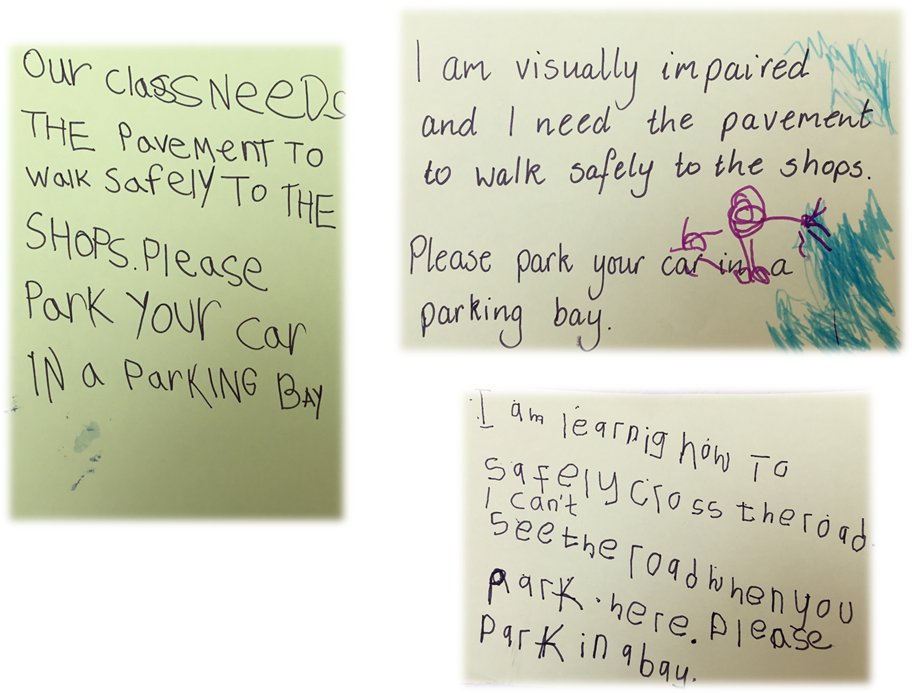 Our class NeeDs
THE PaveMeNT TO
walk safely TO THE
SHOPS. Please
Park YOUR Car
IN a ParKING BAY
I am visually impaired
and I need the pavement
to walk safely to the shops.
Please park your car in a
parking bay.
I am learnig how To
safely cross the road
I can't
see the road when you
park here. Please
park in a bay.